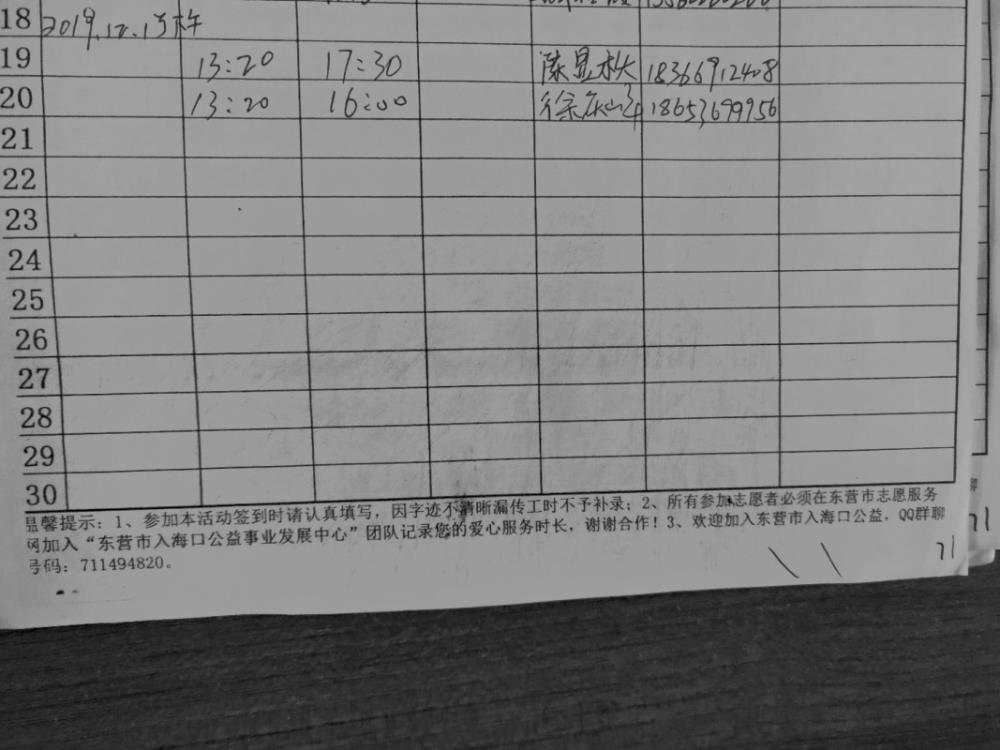 18 2019.12.1号
19 13:20 17:30 陈显 18366912408
20 13:20 16:00 徐 18653699956
21
22
23
24
25
26
27
28
29
30
温馨提示：1、参加本活动签到时请认真填写，因字迹不清晰漏传工时不予补录；2、所有参加志愿者必须在东营市志愿服务
网加入“东营市入海口公益事业发展中心”团队记录您的爱心服务时长，谢谢合作！3、欢迎加入东营市入海口公益，QQ群聊
号码：711494820。
71